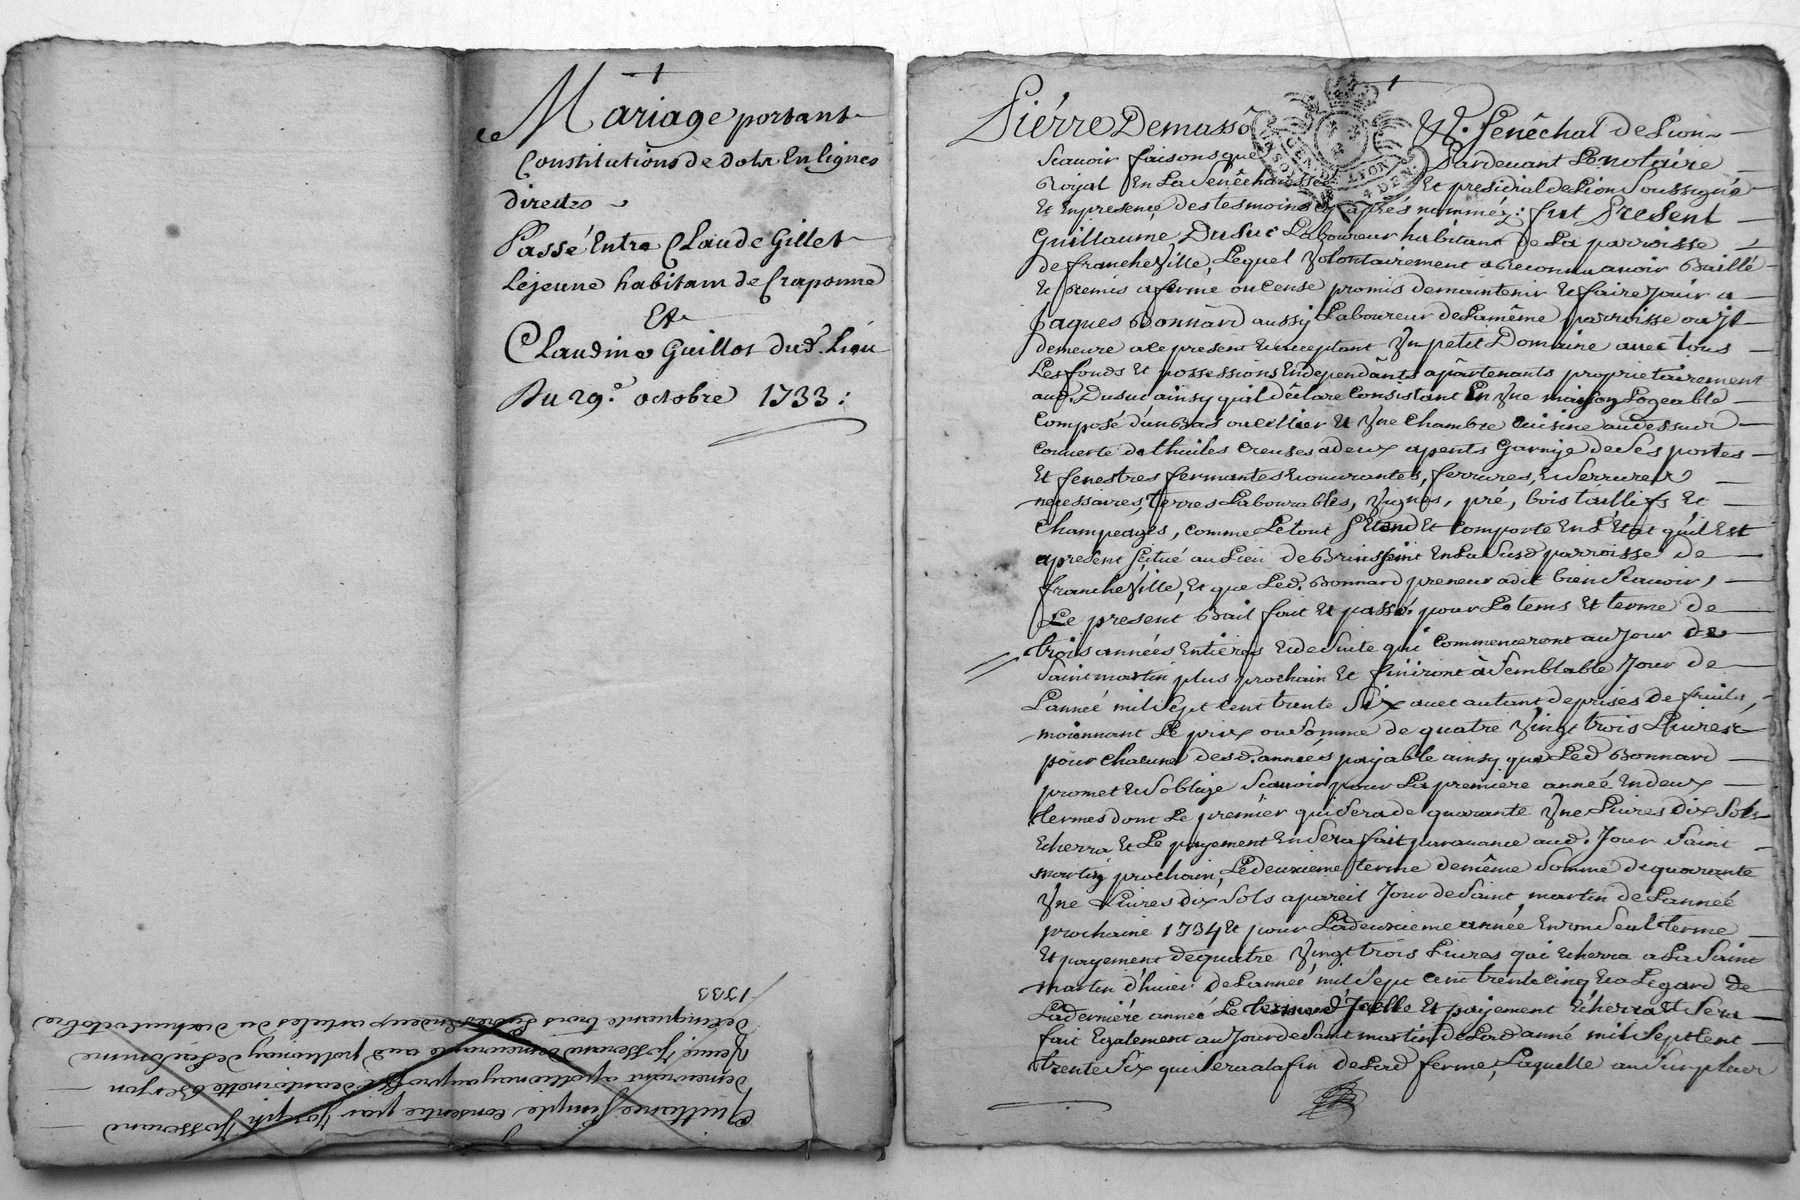 Mariage portant
Constitutions de dots En lignes
directes
Passé Entre Claude Gillet
Lejeune habitant de Craponne
Et
Claudine Guillot dud. Lieu
Du 29.e octobre 1733:
Quittance simple consentie par Joseph Josserand
demeurant a pollionay au proffit de antoinette Berjon
Veuve Josserand demeurante aud pollionay de La somme
de cinquante trois Livres En deux articles du dixhuit octobre
1733
Piérre Demasso
Senêchal de Lion
Scavoir faisons que
Pardevant Le notaire
Royal En La Senêchaussée
Et presidial de Lion Soussigné
Et En presence des tesmoins cy aprés nommez: fut Present
Guillaume Dusuc Laboureur habitant de La parroisse
de francheville, Lequel Volontairement a Reconnu avoir Baillé
Et Remis a ferme ou cense promis de maintenir Et faire Jouir a
Jaques Bonnard aussy Laboureur de La même parroisse ou Jl
demeure a ce present Et acceptant Vn petit Domaine avec tous
Les fonds Et possessions En dependânts apartenants proprietairement
aud. Dusuc ainsy quil déclare Consistant En Vne maison Logeable
Composé d'un Bas ou cellier Et Vne Chambre Cuisine au dessus
Couverte de thuiles Creuses a deux apents Garnye de Sés portes
Et fenestres fermantes Et ouvrantes, ferrures, Et Serrures
necessaires, terres Labourables, Vignes, pré, bois taillifs Et
Champeages, comme Le tout S'Etend Et Comporte En L'Etat qu'il Est
apresent Scitué au Lieu de Bruissin En La Susd parroisse de
francheVille, Et que Led. Bonnard preneur a dit bien Scavoir,
Le present Bail fait Et passé pour Le tems Et terme de
trois années Entiéres Et de Suite qui Commenceront au Jour de
Saint martin plus prochain Et finiront à Semblable Jour de
L'anneé mil Sept Cent trente Six avec autant de prises de fruits,
moiennant Le prix ou Somme de quatre Vingt trois Livres
pour Chacune desd. années payable ainsy que Led Bonnard
promet Et S'oblige Scavoir pour La premiere anneé En deux
termes dont Le prémier qui Sera de quarante Vne Livres Dix Sols
Echerra Et Le payement En Sera fait par avance aud. Jour Saint
martin prochain, Le deuxieme terme de même Somme de quarante
Vne Livres Dix Sols a pareil Jour de Saint martin de L'anneé
prochaine 1734 Et pour La deuxieme année En un Seul terme
Et payement de quatre Vingt trois Livres qui Echerra a La Saint
martin d'hiver de L'anneé mil Sept Cent trente Cinq Et a L'egard de
La derniére anneé Le terme d'Jcelle Et payement Echerra Et Sera
fait Egalement au Jour de Saint martin de Lad anné mil Sept Cent
trente Six qui Sera a la fin de Lad ferme, Laquelle au Surplus